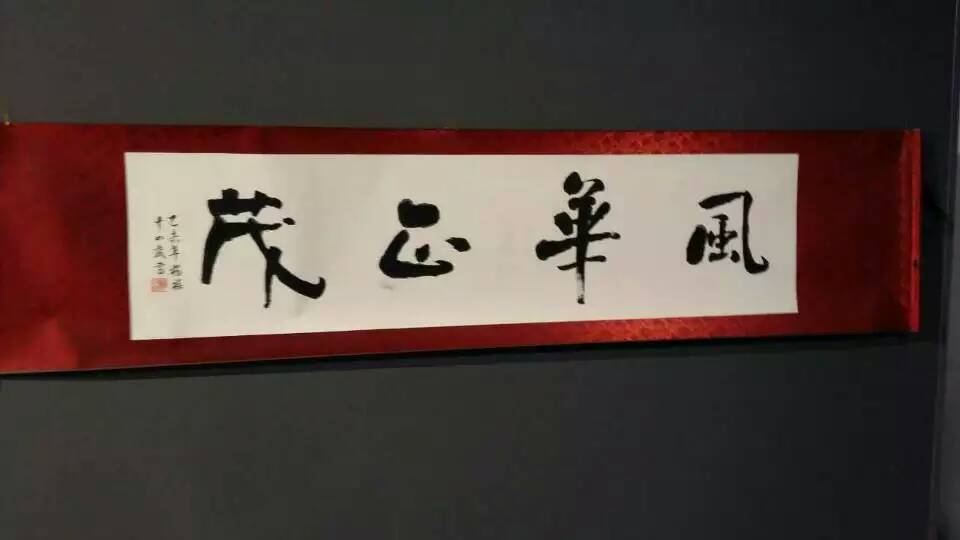 風華正茂
乙未年
十四歲書